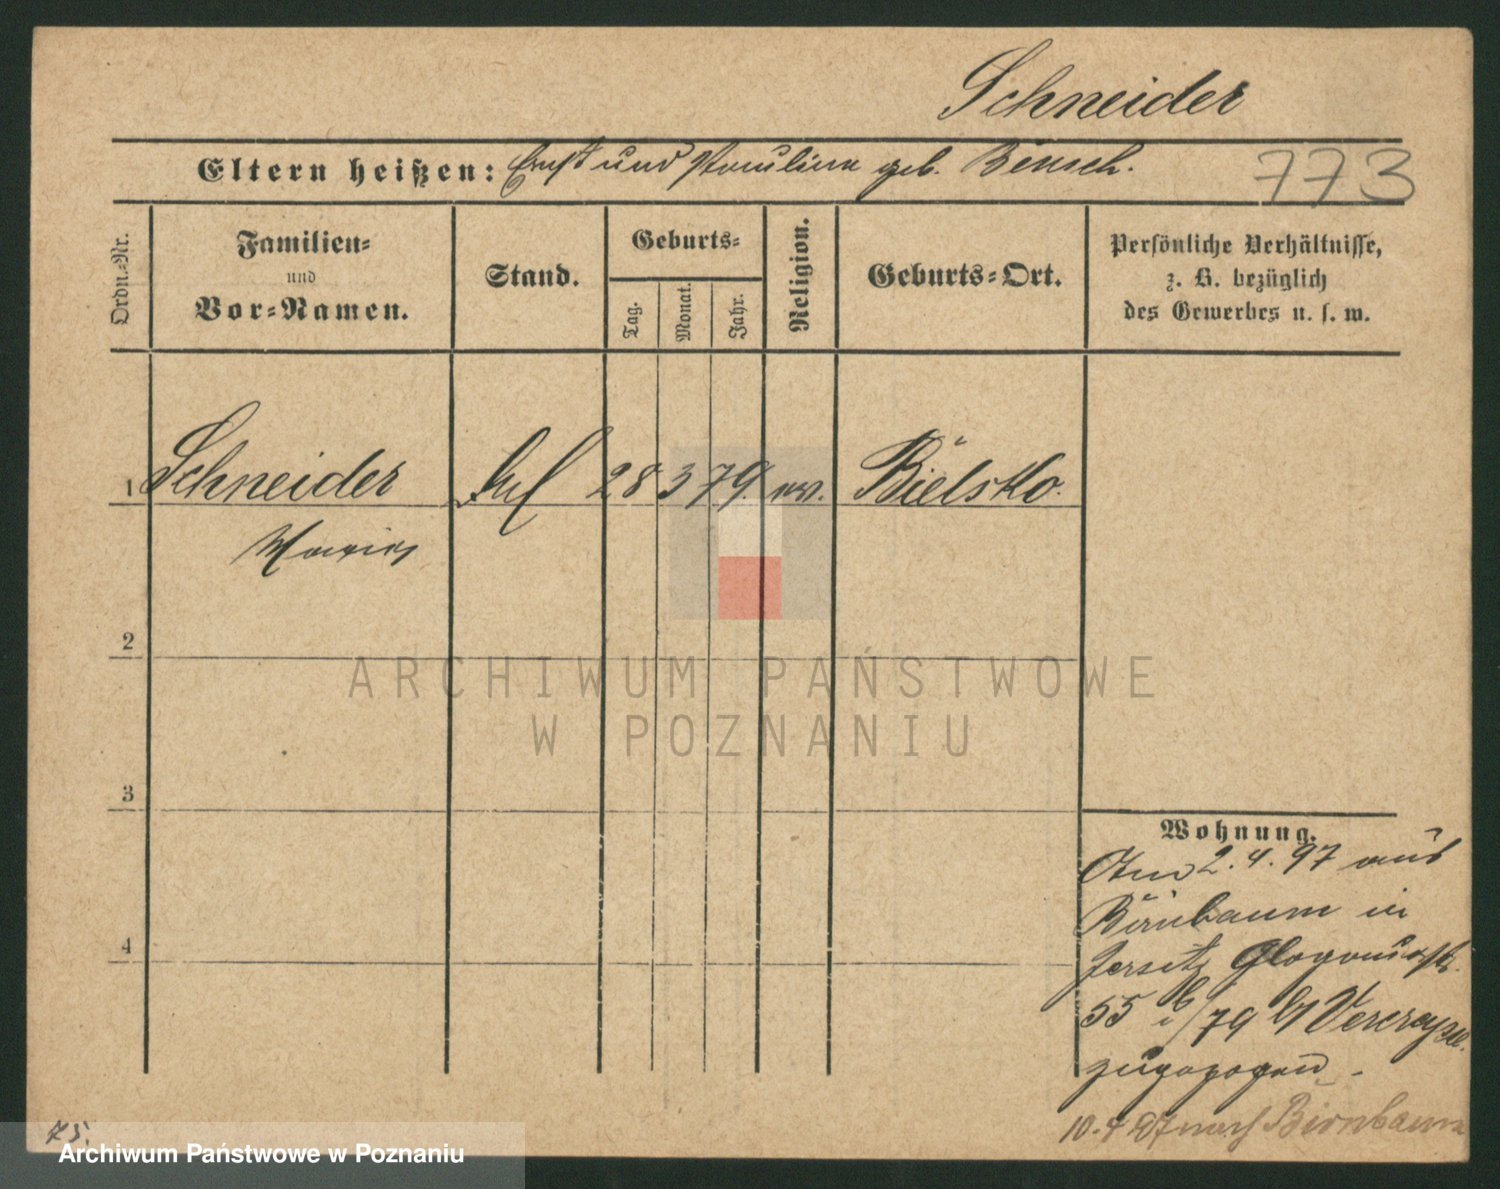 Schneider
Eltern heißen: Ernst und Pauline geb. Bensch.
773
Ordn.-Nr.
Familien-
und
Vor-Namen.
Stand.
Geburts-
Tag.
Monat.
Jahr.
Religion.
Geburts-Ort.
Persönliche Verhältnisse,
z. B. bezüglich
des Gewerbes u. s. w.
1 Schneider 28 3 79 ev. Bielsko.
2
3
4
Wohnung.
Am 2.4.97 aus
Birnbaum in
Jersitz Glogauerstr.
55 79 b/
zugezogen
10.4 97 nach Birnbaum
75.
ARCHIWUM PAŃSTWOWE
W POZNANIU
Archiwum Państwowe w Poznaniu